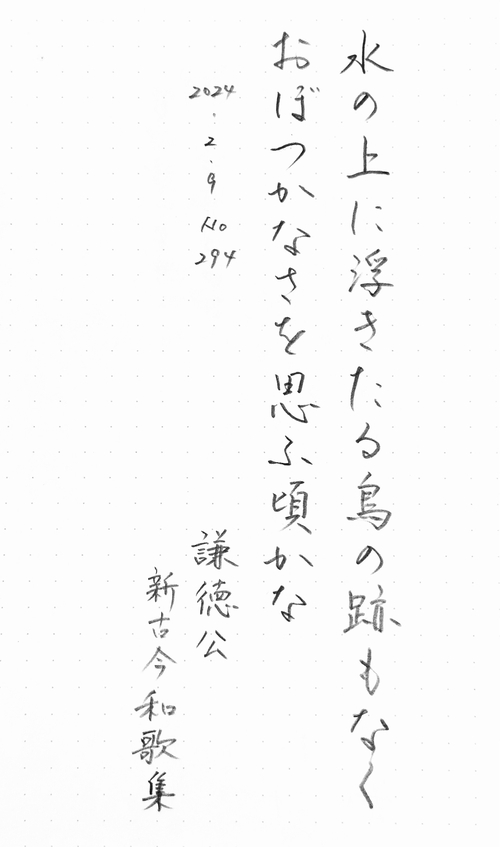 水の上に浮きたる鳥の跡もなく
おぼつかなさを思ふ頃かな
2024.2.9 No 294
謙徳公
新古今和歌集